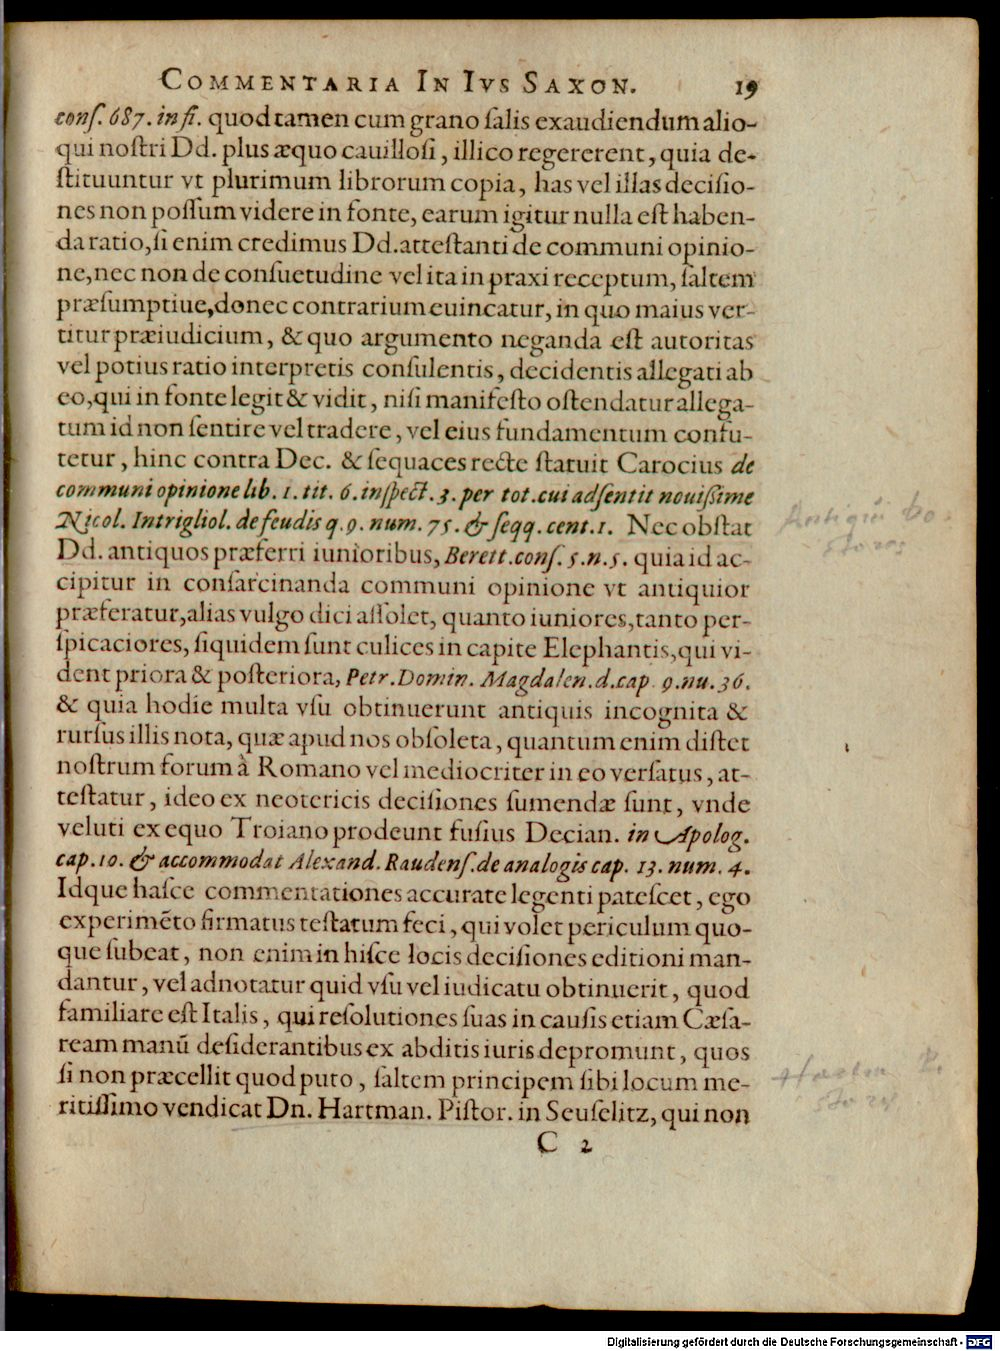 COMMENTARIA IN IVS SAXON. 19
conſ. 687. in fi. quod tamen cum grano ſalis exaudiendum alio-
qui noſtri Dd. plus æquo cauilloſi, illico regererent, quia de-
ſtituuntur vt plurimum librorum copia, has vel illas deciſio-
nes non poſſum videre in fonte, earum igitur nulla eſt haben-
da ratio, ſi enim credimus Dd. atteſtanti de communi opinio-
ne, nec non de conſuetudine vel ita in praxi receptum, ſaltem
præſumptiue, donec contrarium euincatur, in quo maius ver-
titur præiudicium, & quo argumento neganda eſt autoritas
vel potius ratio interpretis conſulentis, decidentis allegati ab
eo, qui in fonte legit & vidit, niſi manifeſto oſtendatur allega-
tum id non ſentire vel tradere, vel eius fundamentum confu-
tetur, hinc contra Dec. & ſequaces recte ſtatuit Carocius de
communi opinione lib. 1. tit. 6. inſpect. 3. per tot. cui adſentit nouiſſime
Nicol. Intrigliol. de feudis q. 9. num. 75. & ſeqq. cent. 1. Nec obſtat
Dd. antiquos præferri iunioribus, Berett. conſ. 5. n. 5. quia id ac-
cipitur in conſarcinanda communi opinione vt antiquior
præferatur, alias vulgo dici aſſolet, quanto iuniores, tanto per-
ſpicaciores, ſiquidem ſunt culices in capite Elephantis, qui vi-
dent priora & poſteriora, Petr. Domin. Magdalen. d. cap. 9. nu. 36.
& quia hodie multa vſu obtinuerunt antiquis incognita &
rurſus illis nota, quæ apud nos obſoleta, quantum enim diſtet
noſtrum forum à Romano vel mediocriter in eo verſatus, at-
teſtatur, ideo ex neotericis deciſiones ſumendæ ſunt, vnde
veluti ex equo Troiano prodeunt fuſius Decian. in Apolog.
cap. 10. & accommodat Alexand. Raudenſ. de analogis cap. 13. num. 4.
Idque haſce commentationes accurate legenti pateſcet, ego
experimẽto firmatus teſtatum feci, qui volet periculum quo-
que ſubeat, non enim in hiſce locis deciſiones editioni man-
dantur, vel adnotatur quid vſu vel iudicatu obtinuerit, quod
familiare eſt Italis, qui reſolutiones ſuas in cauſis etiam Cæſa-
ream manũ deſiderantibus ex abditis iuris depromunt, quos
ſi non præcellit quod puto, ſaltem principem ſibi locum me-
ritiſſimo vendicat Dn. Hartman. Piſtor. in Seuſelitz, qui non
C 2
Digitalisierung gefördert durch die Deutsche Forschungsgemeinschaft - DFG